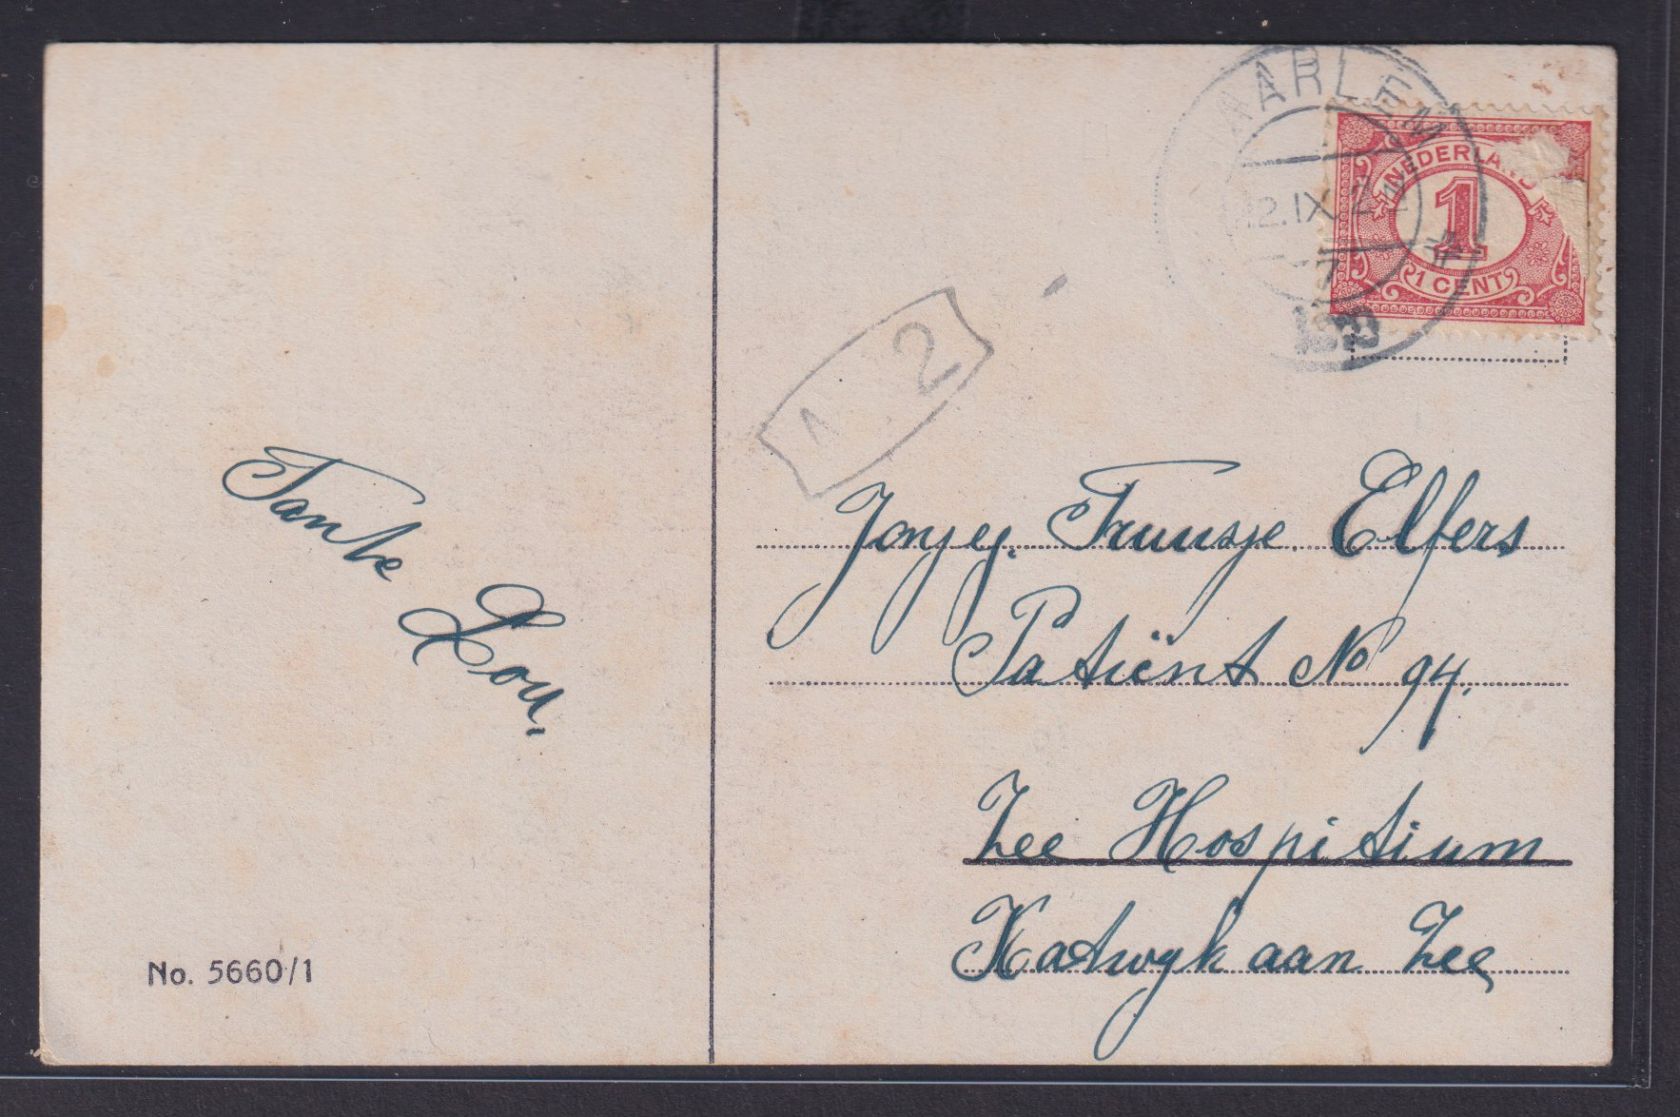 Tante
Lou,
No. 5660/1
HAARLEM
12.IX.2
7
NEDERLAND
1
1 CENT
1 2
Truusje Elfers
Patiënt No 94.
Zee Hospitium
Katwyk aan Zee